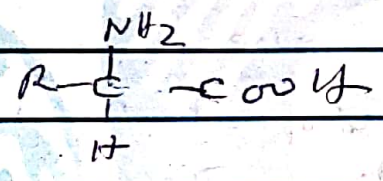 NH2
R-C-COOH
H